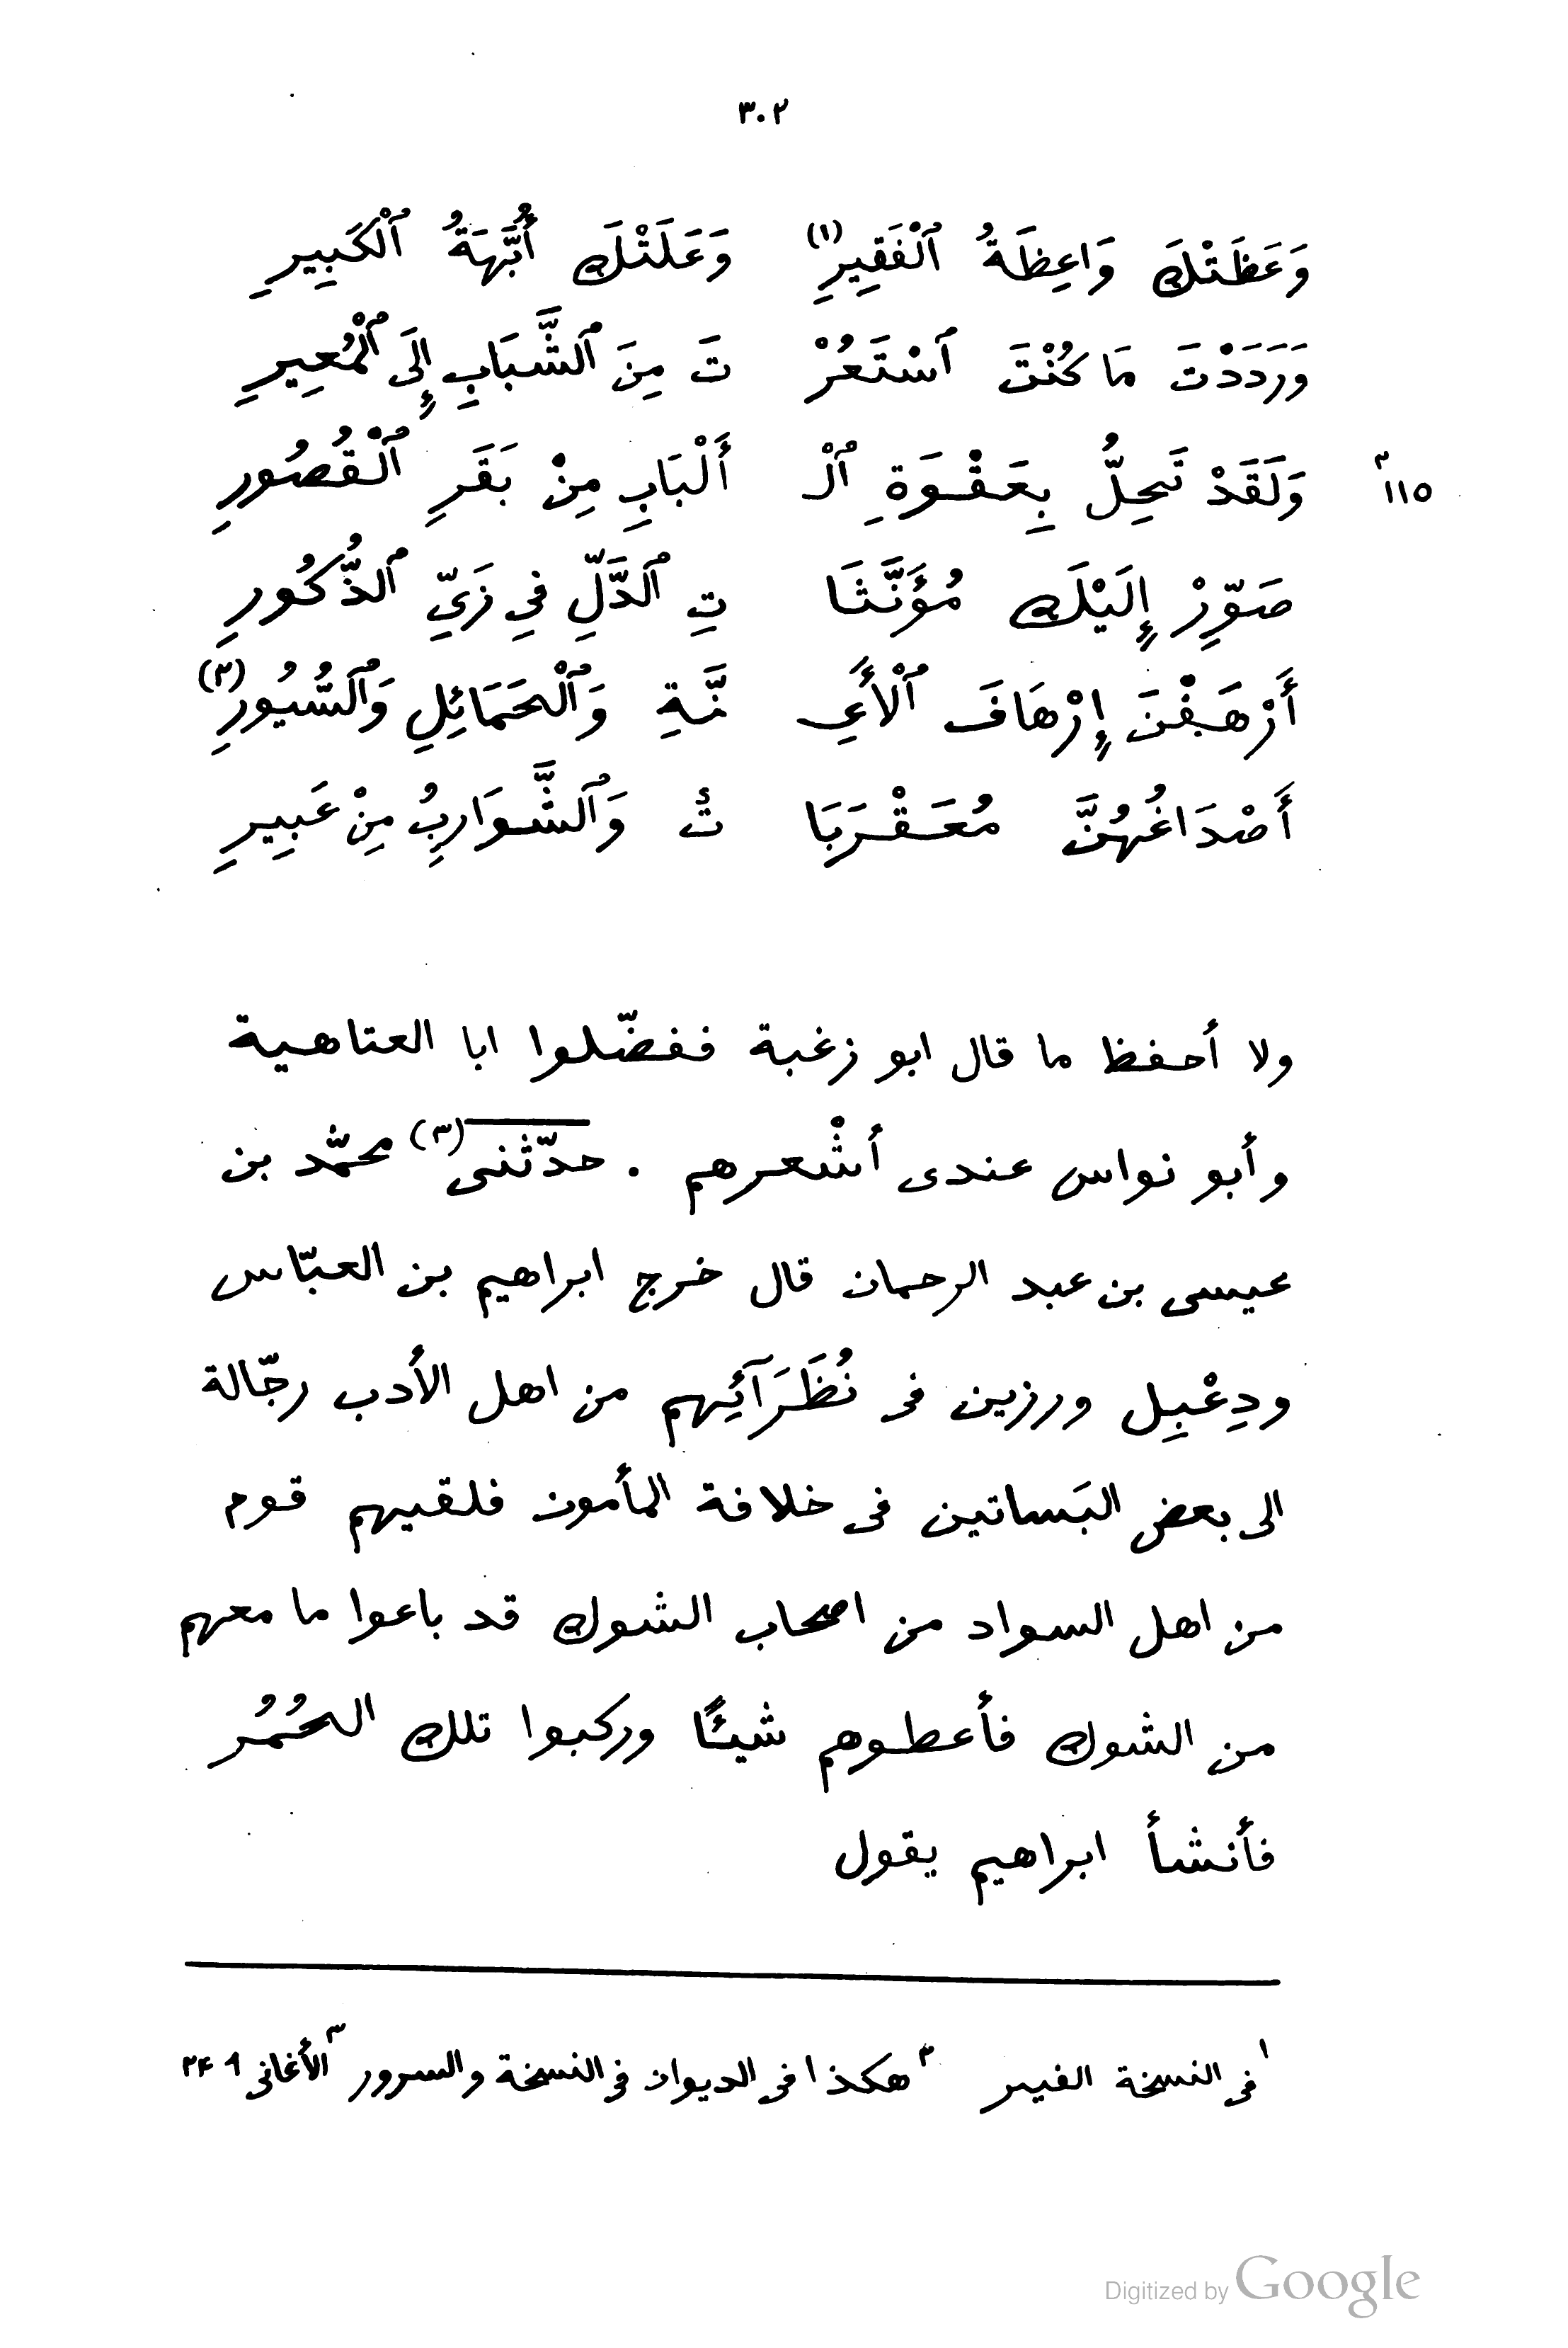 ٣٠٢
وَعَظَتْكَ وَاعِظَةُ ٱلْفَقِيرِ(١) وَعَلَتْكَ أُبَّهَةُ ٱلْكَبِيرِ
وَرَدَدْتَ مَا كُنْتَ ٱسْتَعُرْ تَ مِنَ ٱلشَّبَابِ إِلَى ٱلْمُعِيرِ
١١٥ وَلَقَدْ تَحِلُّ بِعَقْوَةِ ٱلْ أَلْبَابِ مِنْ بَقَرِ ٱلْقُصُورِ
صَوِّرْ إِلَيْكَ مُؤَنَّثَا تِ ٱلدَّلِّ فِي زَيِّ ٱلذُّكُورِ
أَرْهَفْنَ إِرْهَافَ ٱلْأَعِ نَّةِ وَٱلْحَمَائِلِ وَٱلسُّيُورِ(٢)
أَصْدَاغُهُنَّ مُعَقْرَبَا تٌ وَٱلشَّوَارِبُ مِنْ عَبِيرِ
ولا أحفظ ما قال ابو زغبة ففضّلوا ابا العتاهية
وأبو نواس عندى أشْعرهم . حدّثنى(٣) محمّد بن
عيسى بن عبد الرحمان قال خرج ابراهيم بن العبّاس
ودِعْبِل ورزين فى نُظَرَآئِهم من اهل الأدب رجّالة
الى بعض البَساتين فى خلافة المأمون فلقيهم قوم
من اهل السواد من اصحاب الشوك قد باعوا ما معهم
من الشوك فأعطوهم شيئًا وركبوا تلك الحُمُر
فأنشأ ابراهيم يقول
١ فى النسخة الفيير ٢ هكذا فى الديوان فى النسخة والسرور ٣ الأغانى ٩ ٢٤
Digitized by Google